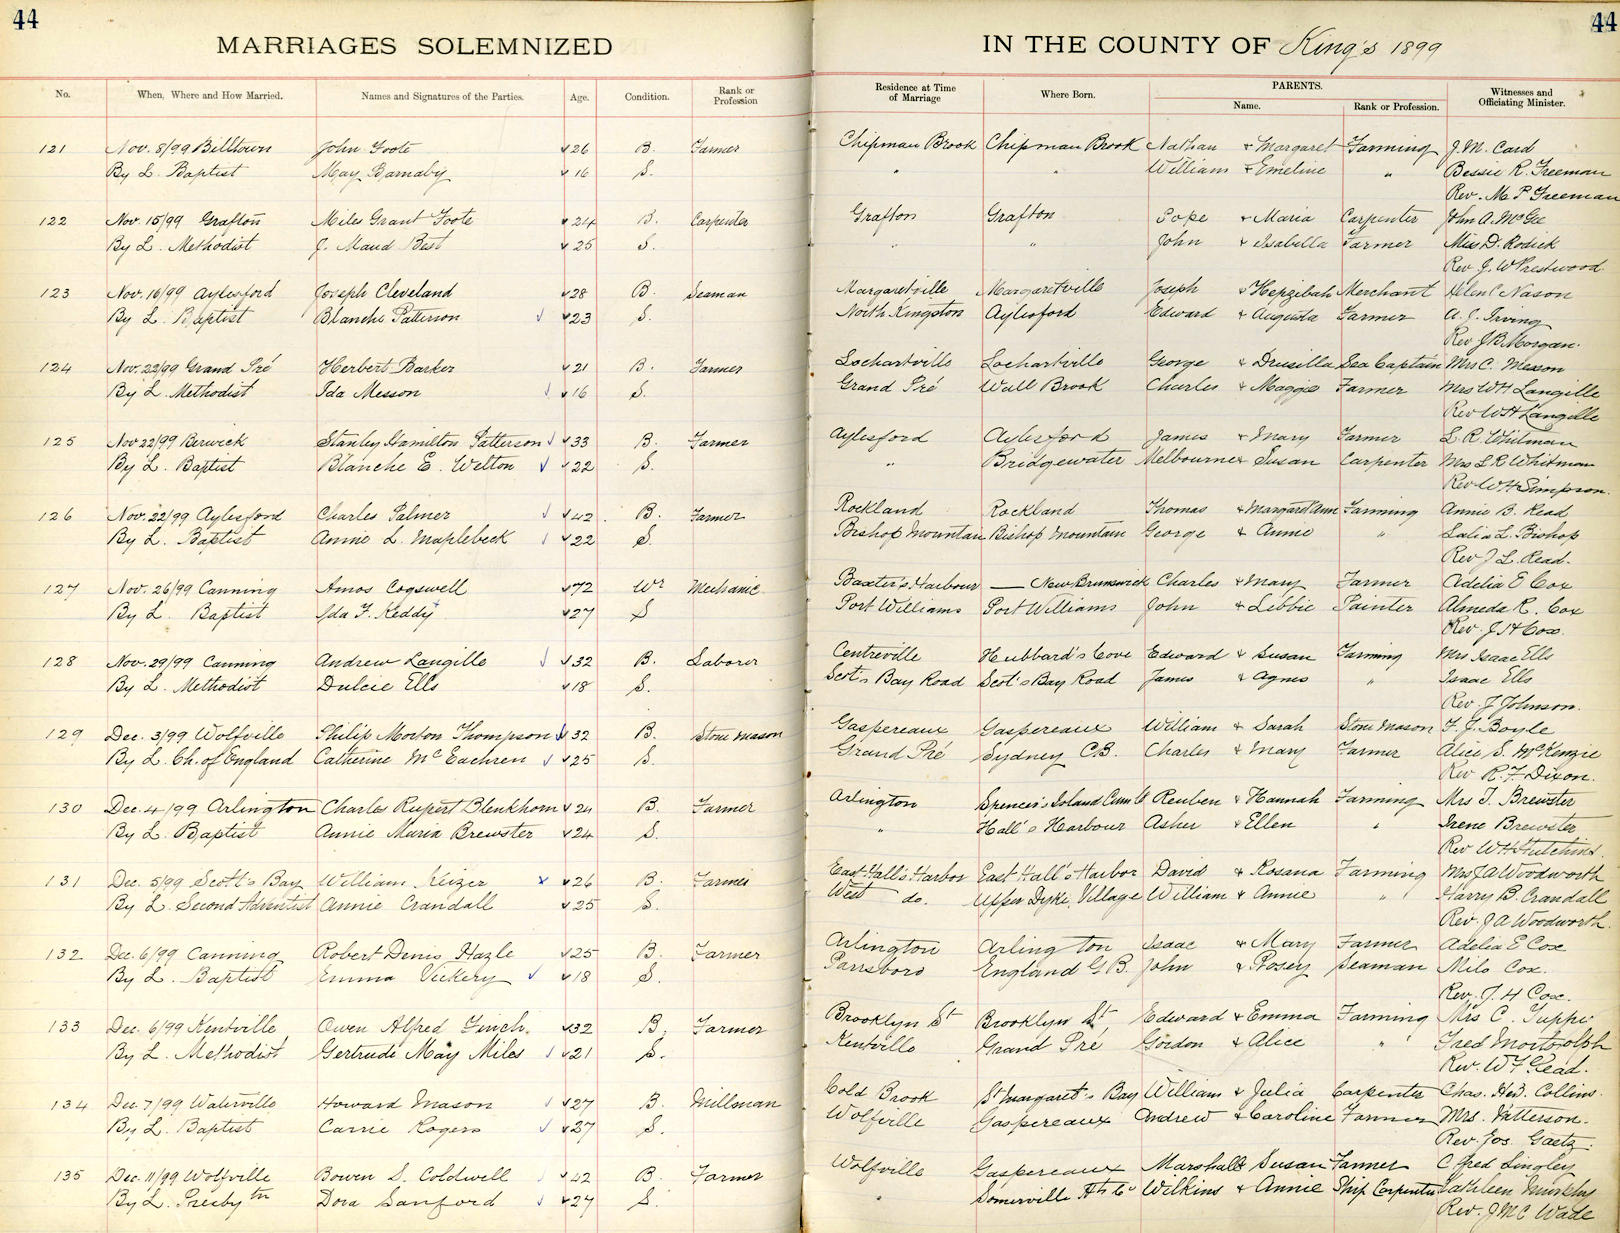 44
44
MARRIAGES SOLEMNIZED
IN THE COUNTY OF King's 1899
No. When, Where and How Married. Names and Signatures of the Parties. Age. Condition. Rank or Profession
Residence at Time of Marriage Where Born. PARENTS. Name. Rank or Profession. Witnesses and Officiating Minister.
121 Nov. 8/99 Billtown John Foote 26 B. Farmer Chipman Brook Chipman Brook Nathan & Margaret Farming J. M. Card
By L. Baptist May Barnaby 16 S. " " William & Emeline " Bessie R. Freeman
Rev. M. P. Freeman
122 Nov. 15/99 Grafton Miles Grant Foote 24 B. Carpenter Grafton Grafton Pope & Maria Carpenter John A. McGee
By L. Methodist J. Maud Best 25 S. " " John & Isabella Farmer Miss D. Rodick
Rev. J. W Prestwood
123 Nov. 16/99 Aylesford Joseph Cleveland 28 B. Seaman Margaretville Margaretville Joseph & Hepzibah Merchant Helen C Nason
By L. Baptist Blanche Patterson 23 S. North Kingston Aylesford Edward & Augusta Farmer A. J. Irving
Rev J. B. Morgan.
124 Nov. 22/99 Grand Pré Herbert Barker 21 B. Farmer Lochartville Lochartville George & Drusilla Sea Captain Mrs C. Messon
By L. Methodist Ida Messon 16 S. Grand Pré Wall Brook Charles & Maggie Farmer Mrs W H Langille
Rev W H Langille
125 Nov 22/99 Berwick Stanley Hamilton Patterson 33 B. Farmer Aylesford Aylesford James & Mary Farmer L. R. Whitman
By L. Baptist Blanche E. Welton 22 S. " Bridgewater Melbourne & Susan Carpenter Mrs L R Whitman
Rev W H Simpson.
126 Nov. 22/99 Aylesford Charles Palmer 42 B. Farmer Rockland Rockland Thomas & Margaret Ann Farming Annie B. Read
By L. Baptist Annie L. Maplebeck 22 S. Bishop Mountain Bishop Mountain George & Annie " L. Bishop
Rev J L. Read.
127 Nov. 26/99 Canning Amos Cogswell 72 Wr Mechanic Baxter's Harbour — New Brunswick Charles & Mary Farmer Adelia E Cox
By L. Baptist Ida F. Keddy 27 S Port Williams Port Williams John & Libbie Painter Almeda R. Cox
Rev. J H Cox.
128 Nov. 29/99 Canning Andrew Langille 32 B. Laborer Centreville Hubbard's Cove Edward & Susan Farming Mrs Isaac Ells
By L. Methodist Dulcie Ells 18 S. Scot's Bay Road Scot's Bay Road James & Agnes " Isaac Ells
Rev. J. Johnson.
129 Dec. 3/99 Wolfville Philip Morton Thompson 32 B. Stone Mason Gaspereaux Gaspereaux William & Sarah Stone Mason F. J. Boyle
By L. Ch. of England Catherine McEachren 25 S. Grand Pré Sydney C.B. Charles & Mary Farmer Alice S. McKenzie
Rev R. F. Dixon.
130 Dec. 4/99 Arlington Charles Rupert Blenkhorn 24 B. Farmer Arlington Spencer's Island Cumb Reuben & Hannah Farming Mrs T. Brewster
By L. Baptist Annie Maria Brewster 24 S. " Hall's Harbour Asher & Ellen " Irene Brewster
Rev W H Hutchins
131 Dec. 5/99 Scott's Bay William Keizer 26 B. Farmer East Hall's Harbor East Hall's Harbor David & Rosena Farming Mrs J A Woodworth
By L. Second Adventist Annie Crandall 25 S. West do. Upper Dyke Village William & Annie " Harry B. Crandall
Rev. J A Woodworth.
132 Dec. 6/99 Canning Robert Denis Hazle 25 B. Farmer Arlington Arlington Isaac & Mary Farmer Adelia E Cox
By L. Baptist Emma Vickery 18 S. Parrsboro England G B. John & Rosey Seaman Milo Cox.
Rev. J. H Cox.
133 Dec. 6/99 Kentville Owen Alfred Finch. 32 B. Farmer Brooklyn St Brooklyn St Edward & Emma Farming Mrs C. Tupper
By L. Methodist Gertrude May Miles 21 S. Kentville Grand Pré Gordon & Alice " Fred
Rev. W
134 Dec. 7/99 Waterville Howard Mason 27 B. Millman Cold Brook St Margaret's Bay William & Julia Carpenter Chas. Collins.
By L. Baptist Carrie Rogers 27 S. Wolfville Gaspereaux Andrew & Caroline Farmer Mrs. Patterson.
Rev. Jos. Gaetz
135 Dec. 11/99 Wolfville Bowen S. Coldwell 42 B. Farmer Wolfville Gaspereaux Marshall & Susan Farmer C Fred Lingley
By L. Presbytn Dora Sanford 27 S. " Somerville Hts Co Wilkins & Annie Ship Carpenter Kathleen Murphy
Rev. J M C Wade